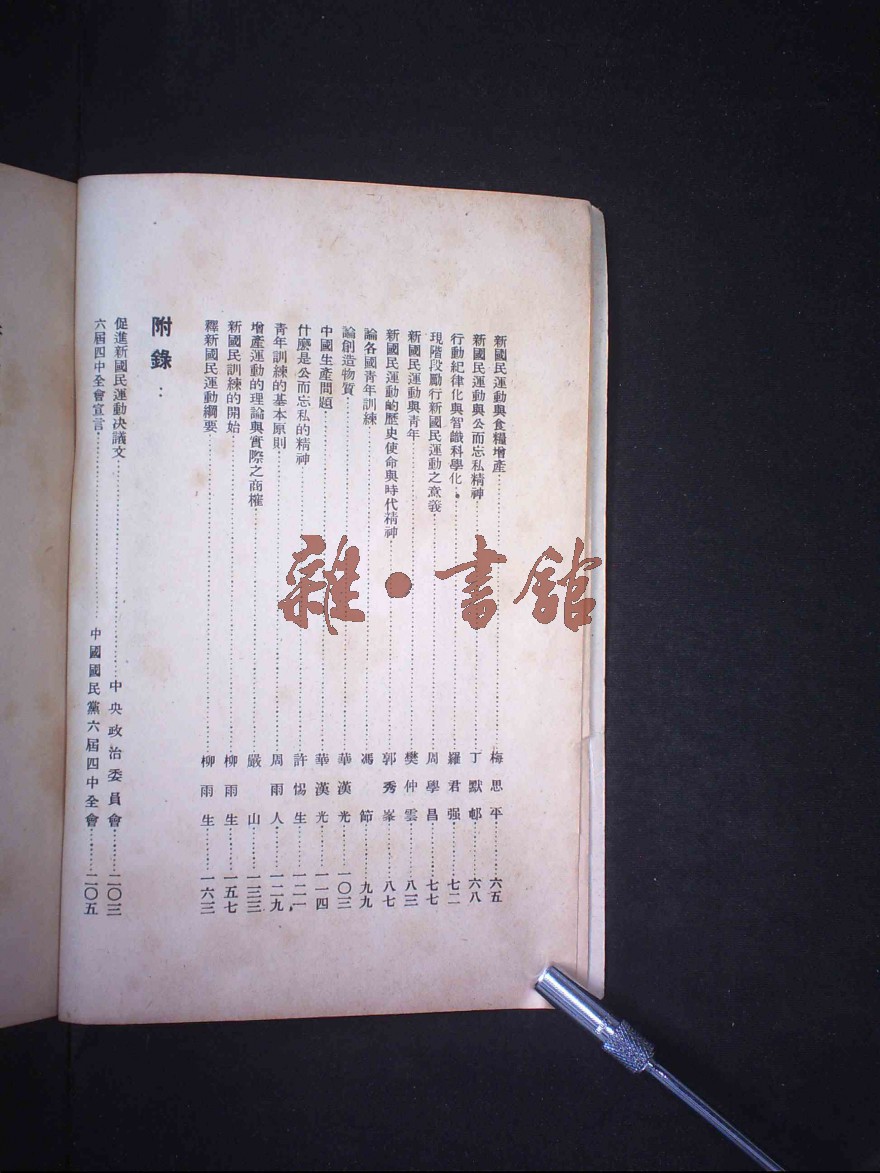 新國民運動與食糧增產……梅思平……六五
新國民運動與公而忘私精神……丁默邨……六八
行動紀律化與智識科學化……羅君强……七二
現階段勵行新國民運動之意義……周學昌……七七
新國民運動與青年……樊仲雲……八三
新國民運動的歷史使命與時代精神……郭秀峯……八七
論各國青年訓練……馮節……九九
論創造物質……華漢光……一〇三
中國生產問題……華漢光……一一四
什麼是公而忘私的精神……許惕生……一二一
青年訓練的基本原則……周雨人……一二九
增產運動的理論與實際之商榷……嚴山……一三三
新國民訓練的開始……柳雨生……一五七
釋新國民運動綱要……柳雨生……一六三
附錄：
促進新國民運動決議文……中央政治委員會……二〇三
六屆四中全會宣言……中國國民黨六屆四中全會……二〇五
雜·書館